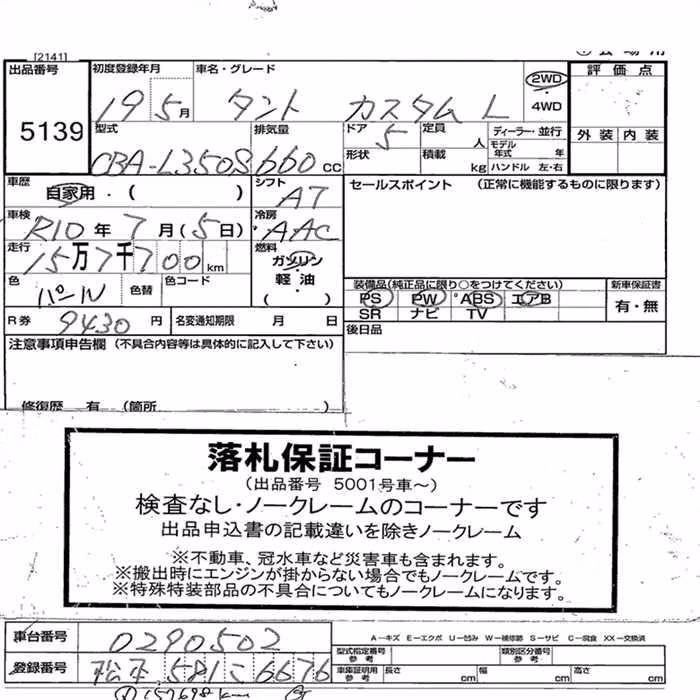 [2141]
出品番号 初度登録年月 車名・グレード 2WD 評価点
19 5月 タント カスタム L 4WD
5139
型式 排気量 ドア 定員 ディーラー・並行 外装 内装
CBA-L350S 660cc 5 人 モデル年式 年
形状 積載 kg ハンドル 左・右
車歴 自家用・( ) シフト A7 セールスポイント (正常に機能するものに限ります)
車検 R10年7月(5日) 冷房 AAC
走行 15万7千700km 燃料 ガソリン
軽油
( )
色 パール 色替 色コード
装備品(純正品に限り○をつけてください) 新車保証書
PS PW ABS エアB 有・無
SR ナビ TV
R券 9430円 名変通知期限 月 日 後日品
注意事項申告欄 (不具合内容等は具体的に記入して下さい)
修復歴 有 (箇所 )
落札保証コーナー
(出品番号 5001号車~)
検査なし・ノークレームのコーナーです
出品申込書の記載違いを除きノークレーム
※不動車、冠水車など災害車も含まれます。
※搬出時にエンジンが掛からない場合でもノークレームです。
※特殊特装部品の不具合についてもノークレームになります。
車台番号 0290502 A-キズ E-エクボ U-凹み W-補修跡 S-サビ C-腐食 XX-交換済
型式指定番号 参考 類別区分番号 参考
登録番号 松本 581こ6676 車庫証明用 参考 長さ cm 幅 cm 高さ cm
157698km